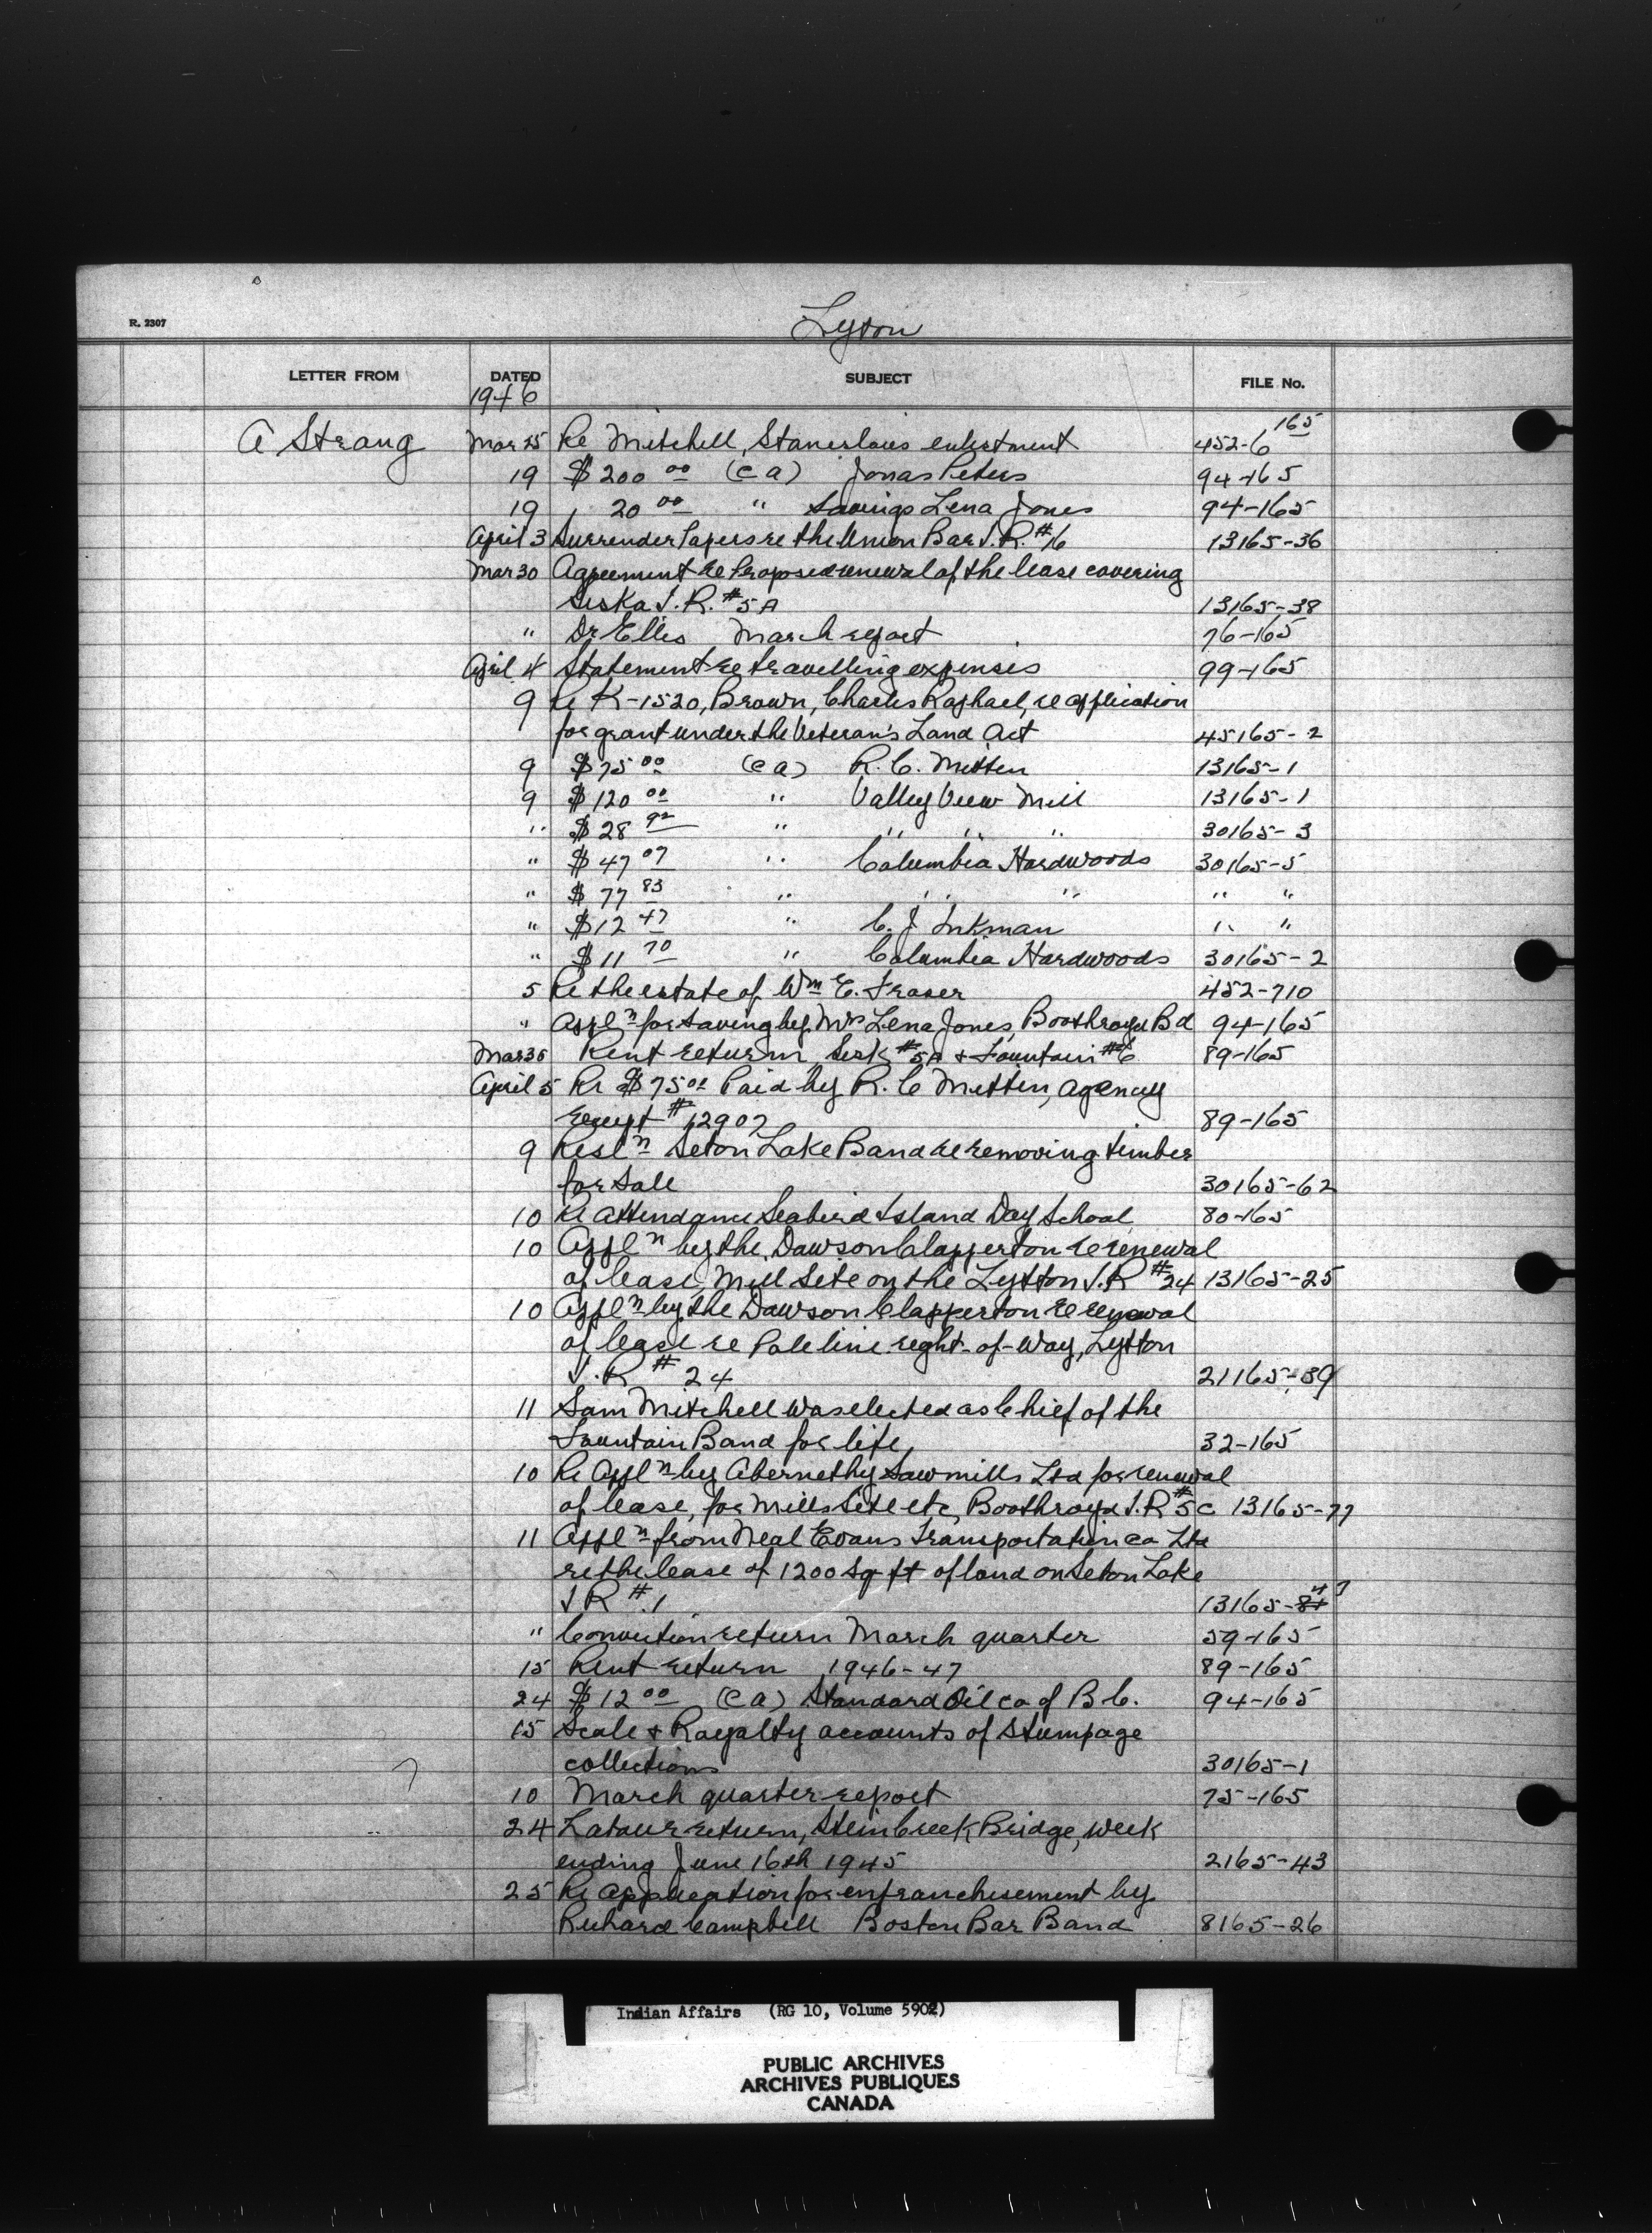 R. 2307
Lyton
LETTER FROM DATED SUBJECT FILE No.
1946
A Strang Mar 25 Re Mitchell, Stanislaus enlistment 452-6 165
19 $200 00 (ca) Jonas Peters 94-165
19 20 00 " Savings Lena Jones 94-165
April 3 Surrender Papers re the Union Bar I.R. #6 13165-36
Mar 30 Agreement re Proposed renewal of the lease covering
Siska I.R. #5A 13165-38
" Dr Ellis March report 76-165
April 4 Statement re travelling expenses 99-165
9 Re K-1520, Brown, Charles Raphael, re application
for grant under the Veteran's Land Act 45165-2
9 $75 00 (ca) R.C. Mitten 13165-1
9 $120 00 " Valley View Mill 13165-1
" $28 92 " " " " 30165-3
" $47 07 " Columbia Hardwoods 30165-5
" $77 83 " " " " "
" $12 47 " C.J. Inkman " "
" $11 70 " Columbia Hardwoods 30165-2
5 Re the estate of Wm E. Fraser 452-710
" Appln for Saving by Mrs Lena Jones, Boothroyd Bd 94-165
Mar 30 Rent return, Sisk #5A & Fountain #6 89-165
April 5 Re $75 00 Paid by R.C Mitten, agency
receipt #12907 89-165
9 Resln Seton Lake Band re removing timber
for Sale 30165-62
10 Re Attendance Seabird Island Day School 80-165
10 Appln by the Dawson Clapperton re renewal
of lease, Mill Site on the Lytton I.R #24 13165-25
10 Appln by the Dawson Clapperton re renewal
of lease re Pole line right-of-way, Lytton
I.R #24 21165-39
11 Sam Mitchell was elected as Chief of the
Fountain Band for life, 32-165
10 Re Appln by Abernethy Sawmills Ltd for renewal
of lease, for Mills Site etc, Boothroyd I.R #5C 13165-77
11 Appln from Neal Evans Transportation co Ltd
re the lease of 1200 sq ft of land on Seton Lake
I R #1 13165-
" Conviction return March quarter 59-165
15 Rent return 1946-47 89-165
24 $12 00 (ca) Standard Oil co of B C. 94-165
15 Scale & Royalty accounts of Stumpage
collections 30165-1
10 March quarter report 75-165
24 Labour return, Stein Creek Bridge, week
ending June 16th 1945 2165-43
25 Re application for enfranchisement by
Richard Campbell Boston Bar Band 8165-26
Indian Affairs (RG 10, Volume 5902)
PUBLIC ARCHIVES
ARCHIVES PUBLIQUES
CANADA